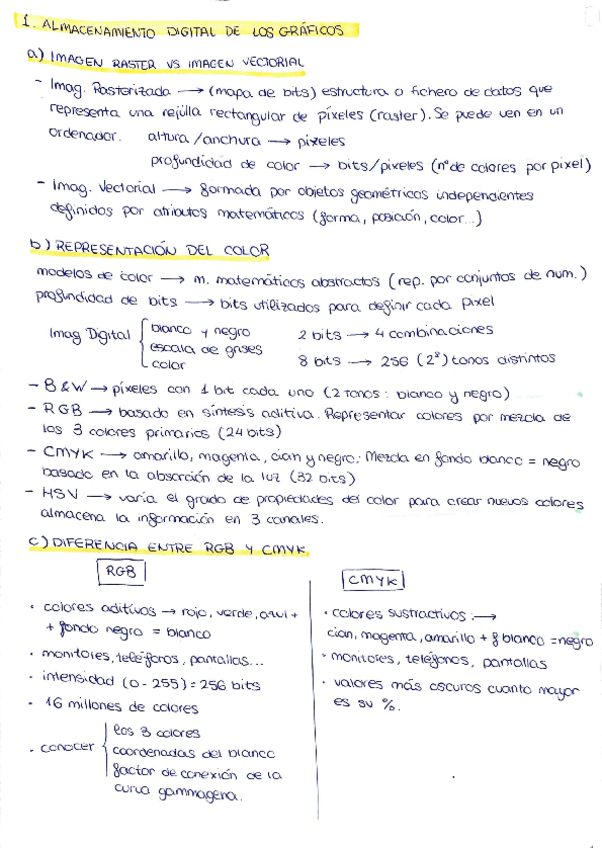 1. ALMACENAMIENTO DIGITAL DE LOS GRÁFICOS
a) IMAGEN RASTER VS IMAGEN VECTORIAL
- Imag. Rasterizada → (mapa de bits) estructura o fichero de datos que
representa una rejilla rectangular de píxeles (raster). Se puede ven en un
ordenador. altura/anchura → pixeles
profundidad de color → bits/pixeles (nº de colores por pixel)
- Imag. Vectorial → formada por objetos geométricos independientes
definidos por atributos matemáticos (forma, posición, color...)
b) REPRESENTACIÓN DEL COLOR
modelos de color → m. matemáticos abstractos (rep. por conjuntos de num.)
profundidad de bits → bits utilizados para definir cada pixel
Imag Digital { blanco y negro 2 bits → 4 combinaciones
escala de grises
color 8 bits → 256 (2⁸) tonos distintos
- B & W → píxeles con 1 bit cada uno (2 tonos: blanco y negro)
- RGB → basado en síntesis aditiva. Representar colores por mezcla de
los 3 colores primarios (24 bits)
- CMYK → amarillo, magenta, cian y negro. Mezcla en fondo blanco = negro
basado en la absorción de la luz (32 bits)
- HSV → varía el grado de propiedades del color para crear nuevos colores
almacena la información en 3 canales.
c) DIFERENCIA ENTRE RGB Y CMYK
RGB
· colores aditivos → rojo, verde, azul +
+ fondo negro = blanco
· monitores, teléfonos, pantallas...
· intensidad (0-255) = 256 bits
· 16 millones de colores
· conocer { los 3 colores
coordenadas del blanco
factor de conexión de la
curva gammagena.
CMYK
· colores sustractivos: →
cian, magenta, amarillo + f blanco = negro
· monitores, teléfonos, pantallas
· valores más oscuros cuanto mayor
es su %.